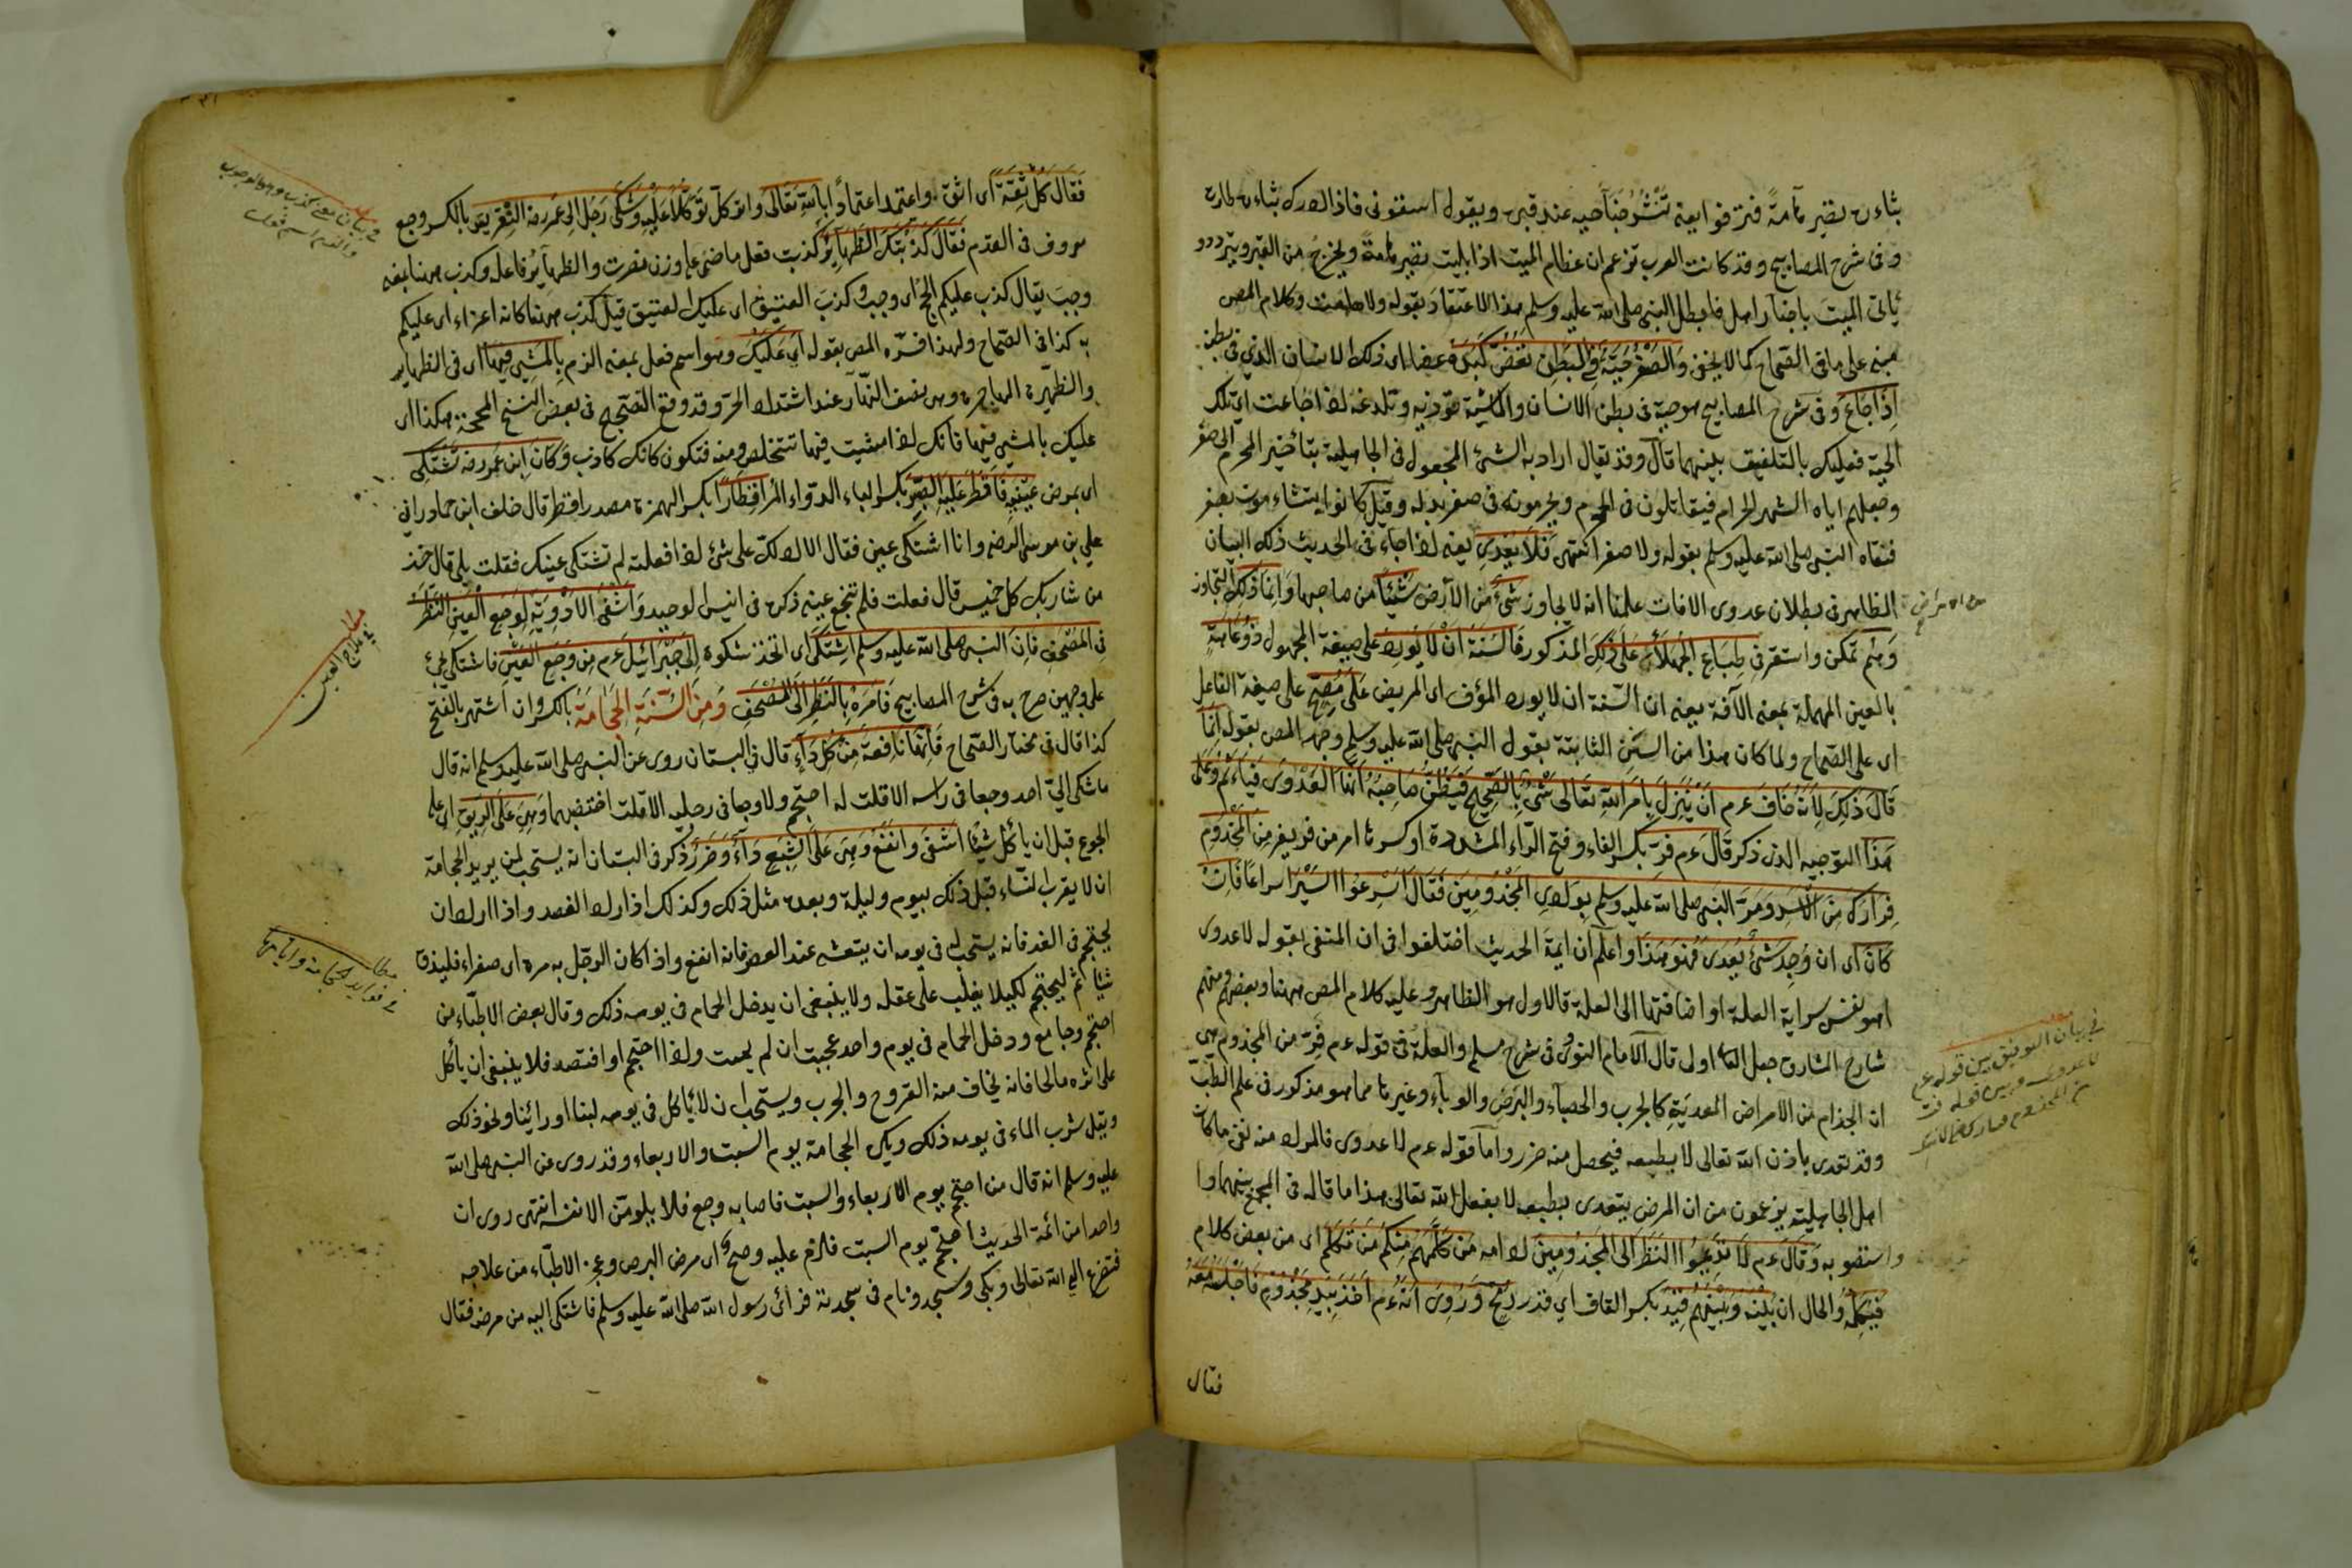 بثاره تصير هامة فتزقو ابعنه تنشر خبا حيه عند قبره ويقول اسقوني فاذا ادرك بثاره طارت
وفي شرح المصابيح وقد كانت العرب تزعم ان عظام الميت اذا بليت تصير هامة ويخرج من القبر ويتردد
يأتي الميت باخبار اهله فابطل النبي صلى الله عليه وسلم هذا الاعتقاد بقوله ولا هامة وكلام المص
مبني على ما في الصحاح كما لا يخفى والصفر حية في البطن تعض كبده عضا اى ذلك الانسان الذي في بطنه
اذا جاع وفي شرح المصابيح هو حية في بطن الانسان والماشية تؤذيه وتلدغه اذا جاعت اى تلك
الحية فعليك بالتلفيق بينهما قال وقد يقال اراد به الشئ المجعول في الجاهلية بتأخير المحرم الى صفر
وجعلهم اياه الشهر الحرام فيقاتلون في المحرم ويحرمونه في صفر بدله وقيل كانوا يتشاءمون بصفر
فنفاه النبي صلى الله عليه وسلم بقوله ولا صفر انتهى فلا يعدى يعنى اذا جاء في الحديث ذلك البيان
الظاهر في بطلان عدوى الافات علمنا انه لا يجاوز شئ من الأرض شيئا من صاحبها وانما ذلك التجاوز
وهم تمكن واستقر في طباع الجهلاء على ذلك المذكور فالسنة ان لا يورد على صيغة المجهول ذو عاهة
بالعين المهملة بمعنى الآفة يعنى ان السنة ان لا يورد المؤف اى المريض على مصح على صيغة الفاعل
اى على الصحاح ولما كان هذا من السنن الثابتة بقول النبي صلى الله عليه وسلم وجهه المص بقوله انما
قال ذلك لانه خاف عم ان ينزل بامر الله تعالى شئ بالصحيح فيظن صاحبه انما العدوى فيأثم وعلى
هذا التوجيه الذي ذكر قال عم فر بكسر الفاء وفتح الراء المشددة او كسرها امر من فر يفر من المجذوم
فرارك من الاسد ومر النبي صلى الله عليه وسلم بوادى المجذومين فقال اسرعوا السير اسراعا فان
كان اى ان وجد شئ يعدى فهو هذا واعلم ان ايمة الحديث اختلفوا في ان المنفى بقوله لا عدوى
اهو نفس سراية العلة او اضافتها الى العلة فالاول هو الظاهر وعليه كلام المص ههنا وبعضهم ومنهم
شارح المشارق جعل الثانى اولى قال الامام النووى في شرح مسلم والعلة في قوله عم فر من المجذوم هى
ان الجذام من الامراض المعدية كالجرب والحصباء والبرص والوباء وغيرها مما هو مذكور في علم الطب
وقد تعدى باذن الله تعالى لا بطبعه فيحصل منه ضرر واما قوله عم لا عدوى فالمراد منه نفى ما كان
اهل الجاهلية يزعمون من ان المرض يتعدى بطبعه لا بفعل الله تعالى هذا ما قاله في الجمع بينهما
واستصوبه وقال عم لا تديموا النظر الى المجذومين من كلمهم منكم من تكلم اى من بعض كلام
فيكلمه والحال ان بينه وبينهم قيد بكسر القاف اي قدر رمح وروى انه عم اخذ بيد مجذوم فاجلسه معه
فقال
في بيان التوفيق بين قوله عم
لا عدوى وبين قوله فر
من المجذوم فرارك من الاسد
فقال كل ثقة اى اثق واعتمد اعتمادا بالله تعالى واتوكل توكلا عليه وشكى رجل الى عمر رضه النقرس بالكسر وجع
معروف في القدم فقال كذبتك الظهائر كذبت فعل ماضى على وزن ضربت والظهائر فاعله وكذب ههنا بمعنى
وجب يقال كذب عليكم الحج اى وجب وكذب العتيق اى عليك العتيق قيل كذب ههنا كانه اغراء اى عليكم
به كذا في الصحاح ولهذا فسره المص بقوله اى عليك وهو اسم فعل بمعنى الزم بالمشى فيها اى في الظهاير
والظهيرة الهاجرة وهى نصف النهار عند اشتداد الحر وقد وقع التصحيح في بعض النسخ المصححة هكذا اى
عليك بالمشى فيها فانك اذا مشيت فيها تتخلص منه فتكون كانك كاذب وكان ابن عمر رضه تشتكى
اى يمرض عينيه فاقطر عليه الصبر بكسر الباء الدواء المر اقطارا بكسر الهمزة مصدر اقطر قال خلف ابن حماد رانى
علي بن موسى الرضى وانا اشتكى عينى فقال الا ادلك على شئ اذا فعلته لم تشتكى عينك فقلت بلى قال خذ
من شاربك كل خميس قال فعلت فلم تنجع عينه ذكره في انيس الوحيد واشفى الادوية لوجع العين النظر
في المصحف فان النبي صلى الله عليه وسلم اشتكى اى اتخذ شكوة الى جبرائيل عم من وجع العين فاشتكى يجئ
على وجهين صرح به في شرح المصابيح فامره بالنظر الى المصحف ومن السنة الحجامة بالكسر وان اشتهر بالفتح
كذا قال في مختار الصحاح فانها نافعة من كل داء قال في البستان روى عن النبي صلى الله عليه وسلم انه قال
ما شكى الي احد وجعا في راسه الا قلت له احتجم ولا وجعا في رجليه الا قلت اخضبهما وهى على الريق اى على
الجوع قبل ان يأكل شيئا اشفى وانفع وهى على الشبع داء وضرر ذكر في البستان انه يستحب لمن يريد الحجامة
ان لا يقرب النساء قبل ذلك بيوم وليلة وبعده مثل ذلك وكذلك اذا اراد الفصد واذا اراد ان
يحتجم في الغد فانه يستحب له في يومه ان يتعشى عند العصر فانه انفع واذا كان الرجل به مره اى صفراء فليذق
شيئا ثم ليحتجم لكيلا يغلب على عقله ولا ينبغى ان يدخل الحمام في يومه ذلك وقال بعض الاطباء من
احتجم وجامع ودخل الحمام في يوم واحد عجبت ان لم يمت واذا احتجم او افتصد فلا ينبغى ان يأكل
على اثره مالحا فانه يخاف منه القروح والجرب ويستحب ان لا يأكل في يومه لبنا او رائبا ونحو ذلك
ويقل شرب الماء في يومه ذلك ويكره الحجامة يوم السبت والاربعاء وقد روى عن النبي صلى الله
عليه وسلم انه قال من احتجم يوم الاربعاء والسبت فاصابه وجع فلا يلومن الا نفسه انتهى روى ان
واحدا من ائمة الحديث احتجم يوم السبت فلزم عليه وضح اى مرض البرص وعجز الاطباء من علاجه
فتضرع الى الله تعالى وبكى وسجد ونام في سجدته فرأى رسول الله صلى الله عليه وسلم فاشتكى اليه من مرضه فقال
مطلب
في علاج العين
مطلب
في فوايد الحجامة وايامها